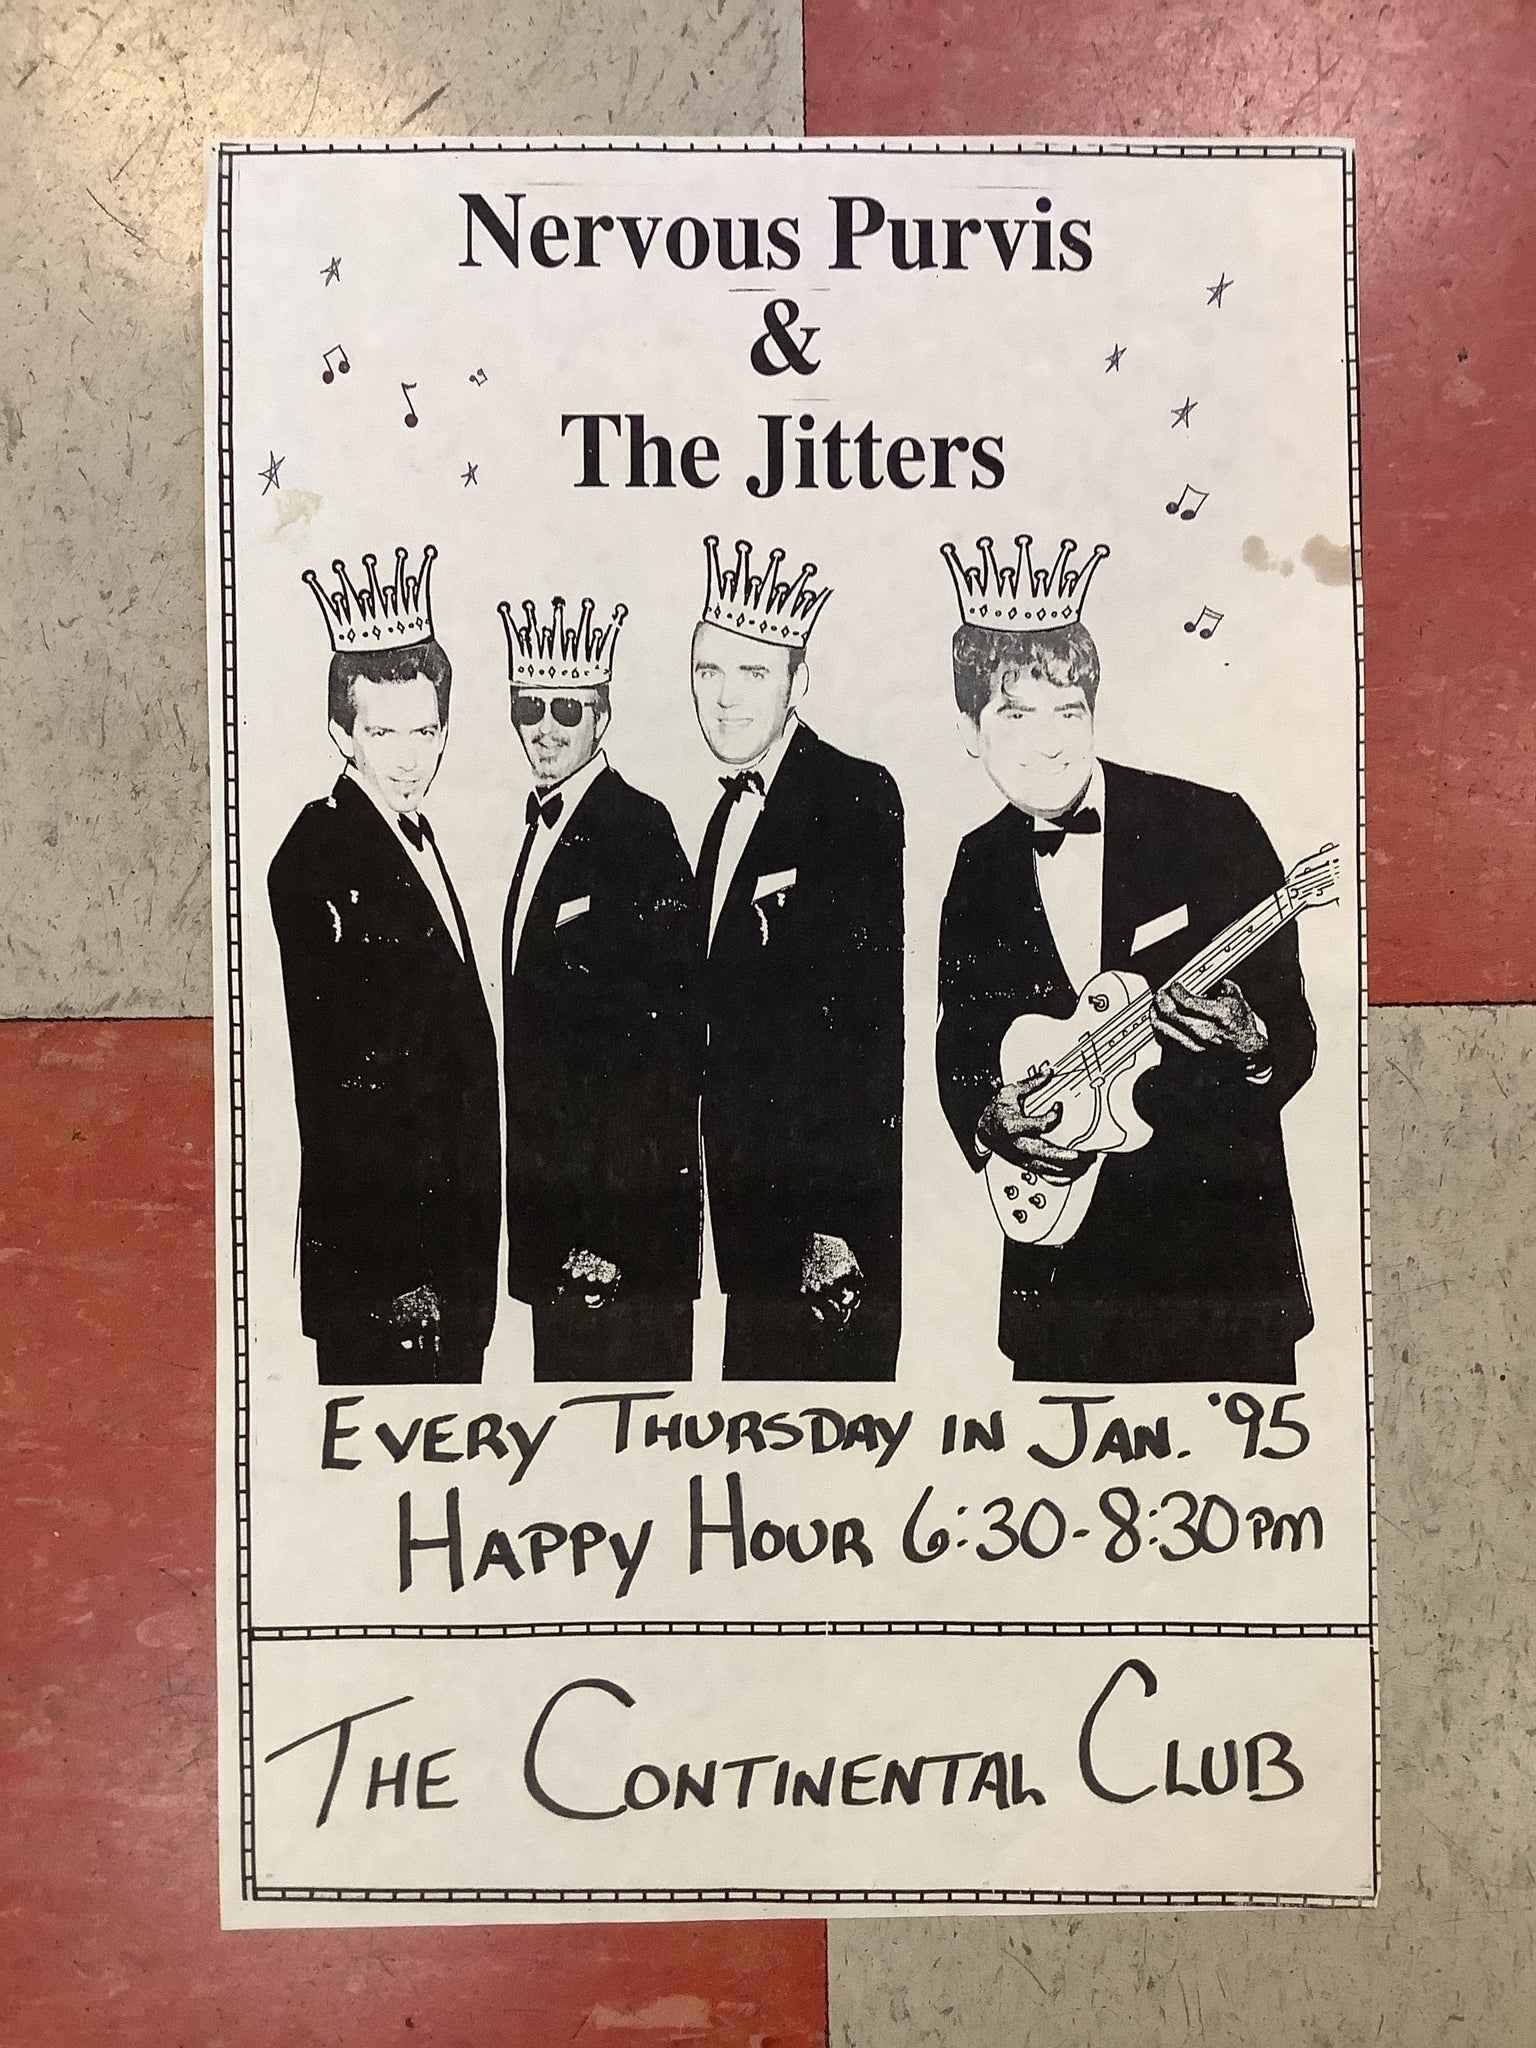 Nervous Purvis
&
The Jitters
EVERY THURSDAY IN JAN. '95
HAPPY HOUR 6:30-8:30PM
THE CONTINENTAL CLUB